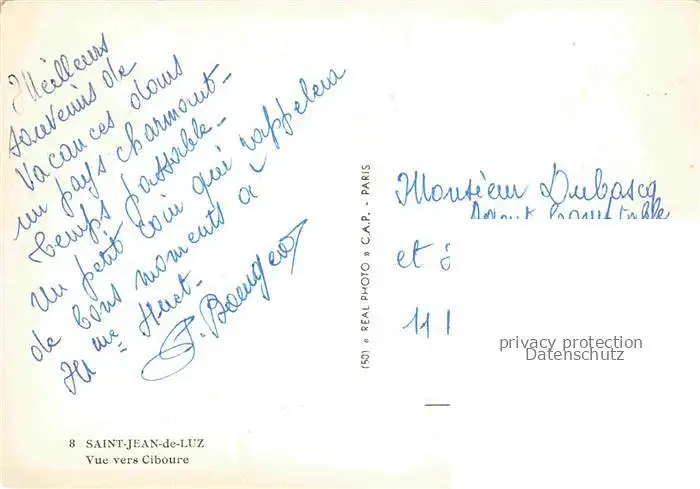 Meilleurs
souvenirs de
Vacances dans
un pays charmant -
temps passable -
Un petit coin qui rappelera
de bons moments à
Mme Huet -
Monsieur Dubascq
Agent Comptable
et
11
(50) « REAL PHOTO » C.A.P. - PARIS
privacy protection
Datenschutz
8 SAINT-JEAN-de-LUZ
Vue vers Ciboure